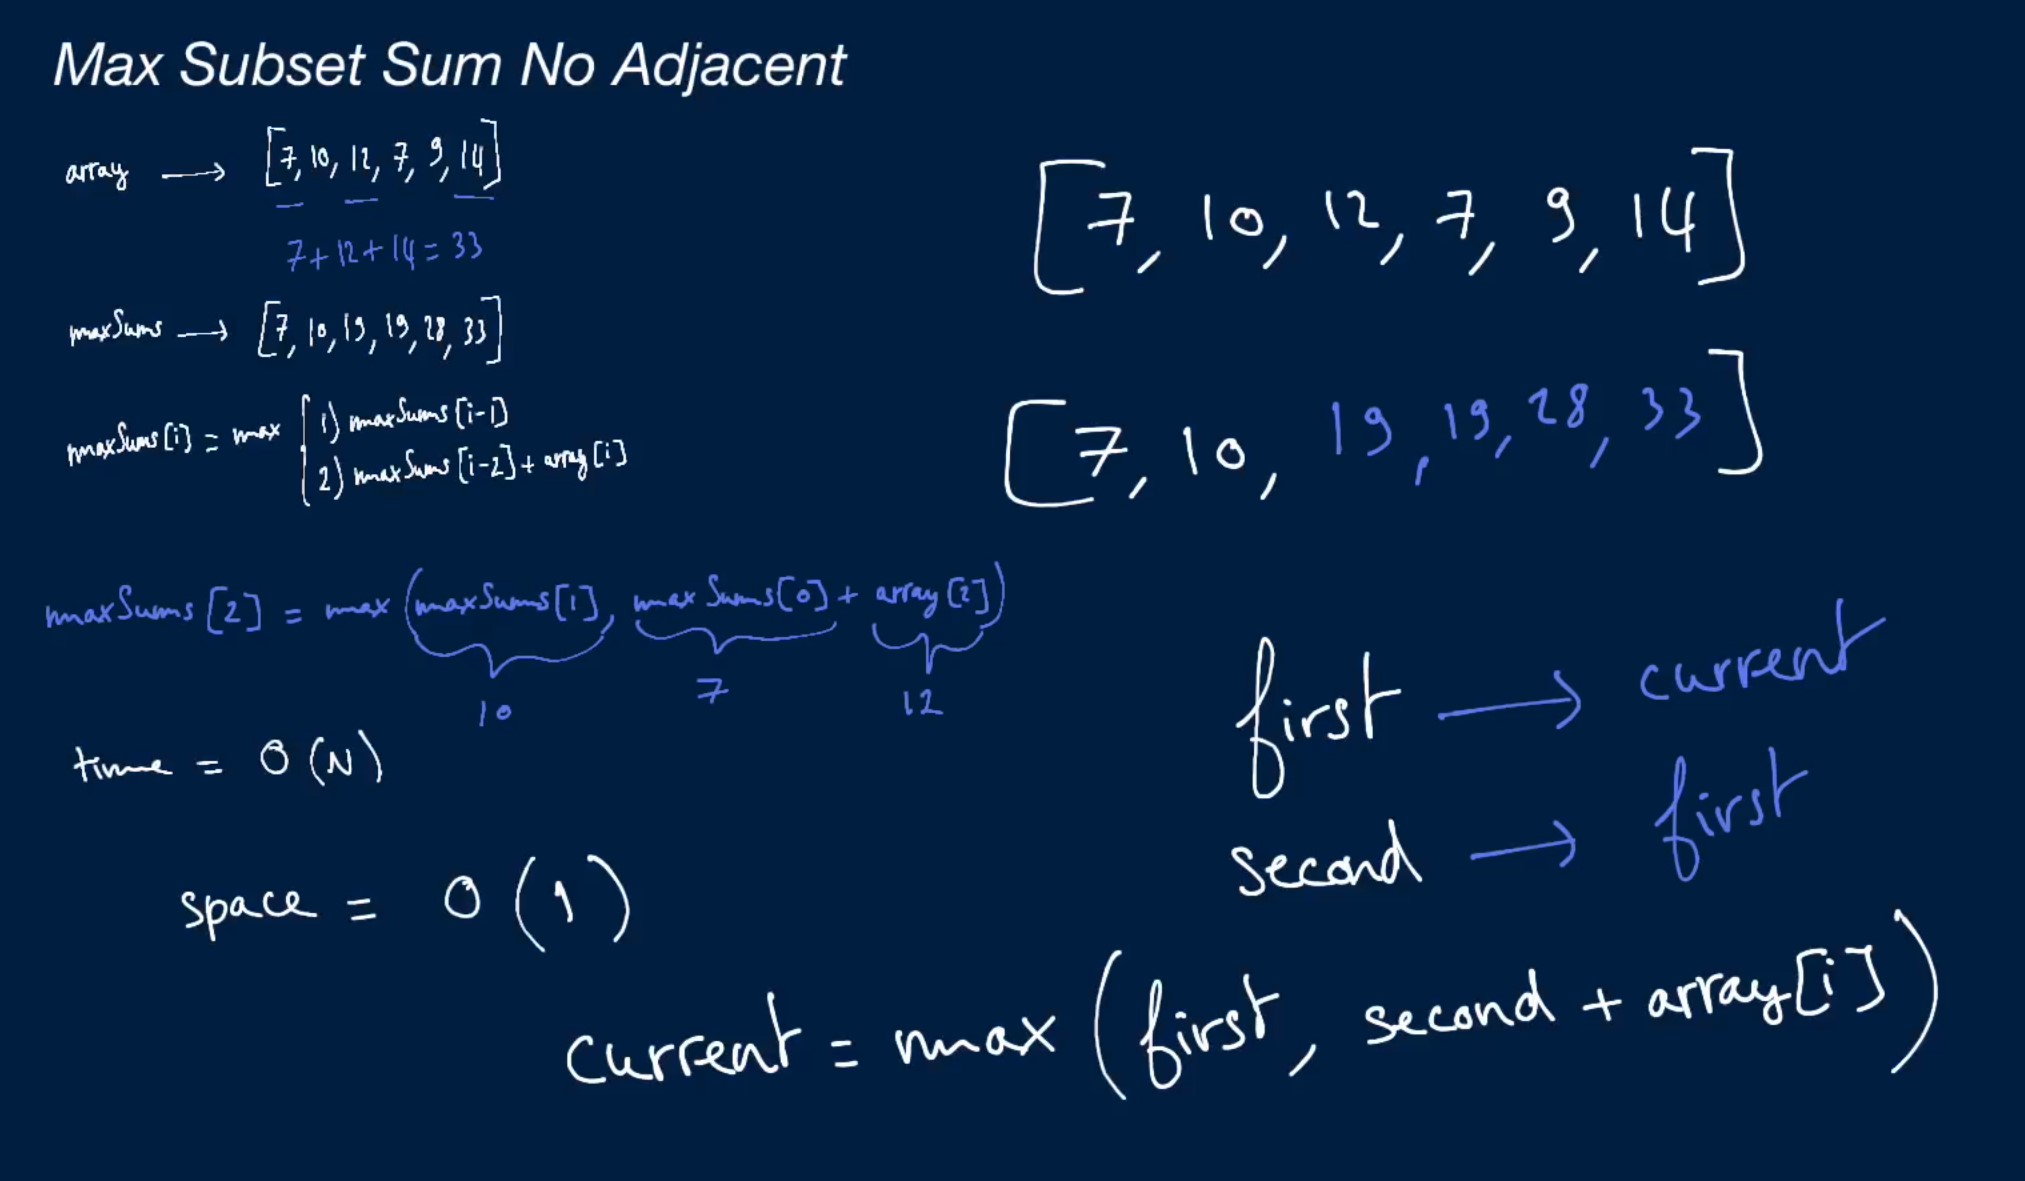 Max Subset Sum No Adjacent
array → [7, 10, 12, 7, 9, 14]
7+12+14=33
maxSums → [7, 10, 19, 19, 28, 33]
maxSums[i] = max
1) maxSums[i-1]
2) maxSums[i-2]+array[i]
maxSums[2] = max(maxSums[1], maxSums[0] + array[2])
10 7 12
time = O(N)
space = O(1)
[7, 10, 12, 7, 9, 14]
[7, 10, 19, 19, 28, 33]
first → current
second → first
current = max(first, second + array[i])